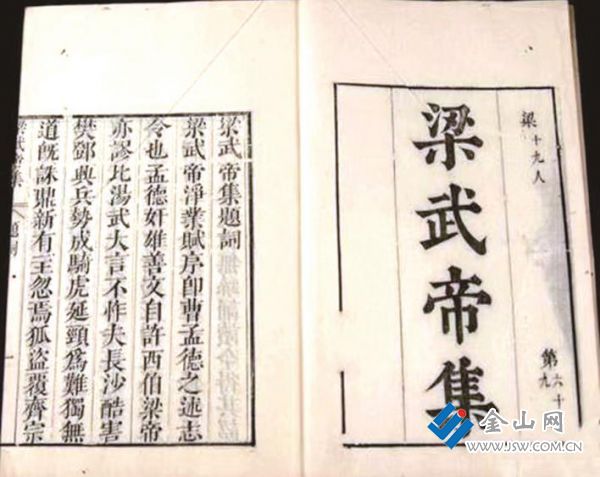 梁十九人
梁武帝集
第六十九
梁武帝集題詞
梁武帝淨業賦序卽曹孟德之述志
令也孟德奸雄善文自許西伯梁帝
亦謬比湯武大言不怍夫長沙酷害
樊鄧興兵勢成騎虎延頸爲難獨無
道既誅鼎新有主忽焉狐盜覆齊宗
梁武帝集
金山网
WWW.JSW.COM.CN